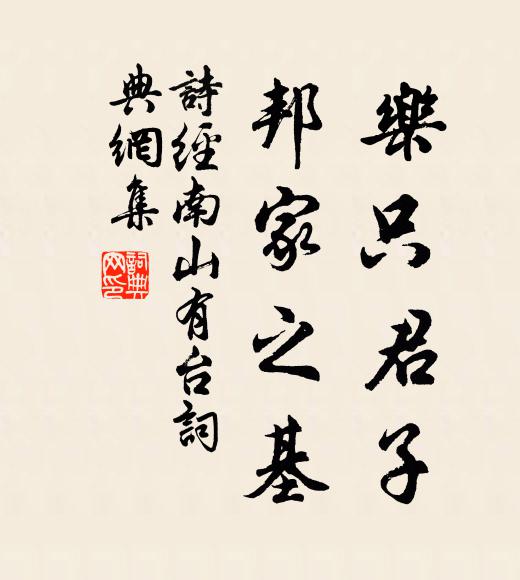 樂只君子
邦家之基
詩經南山有台詞
典網集
詞典
网印